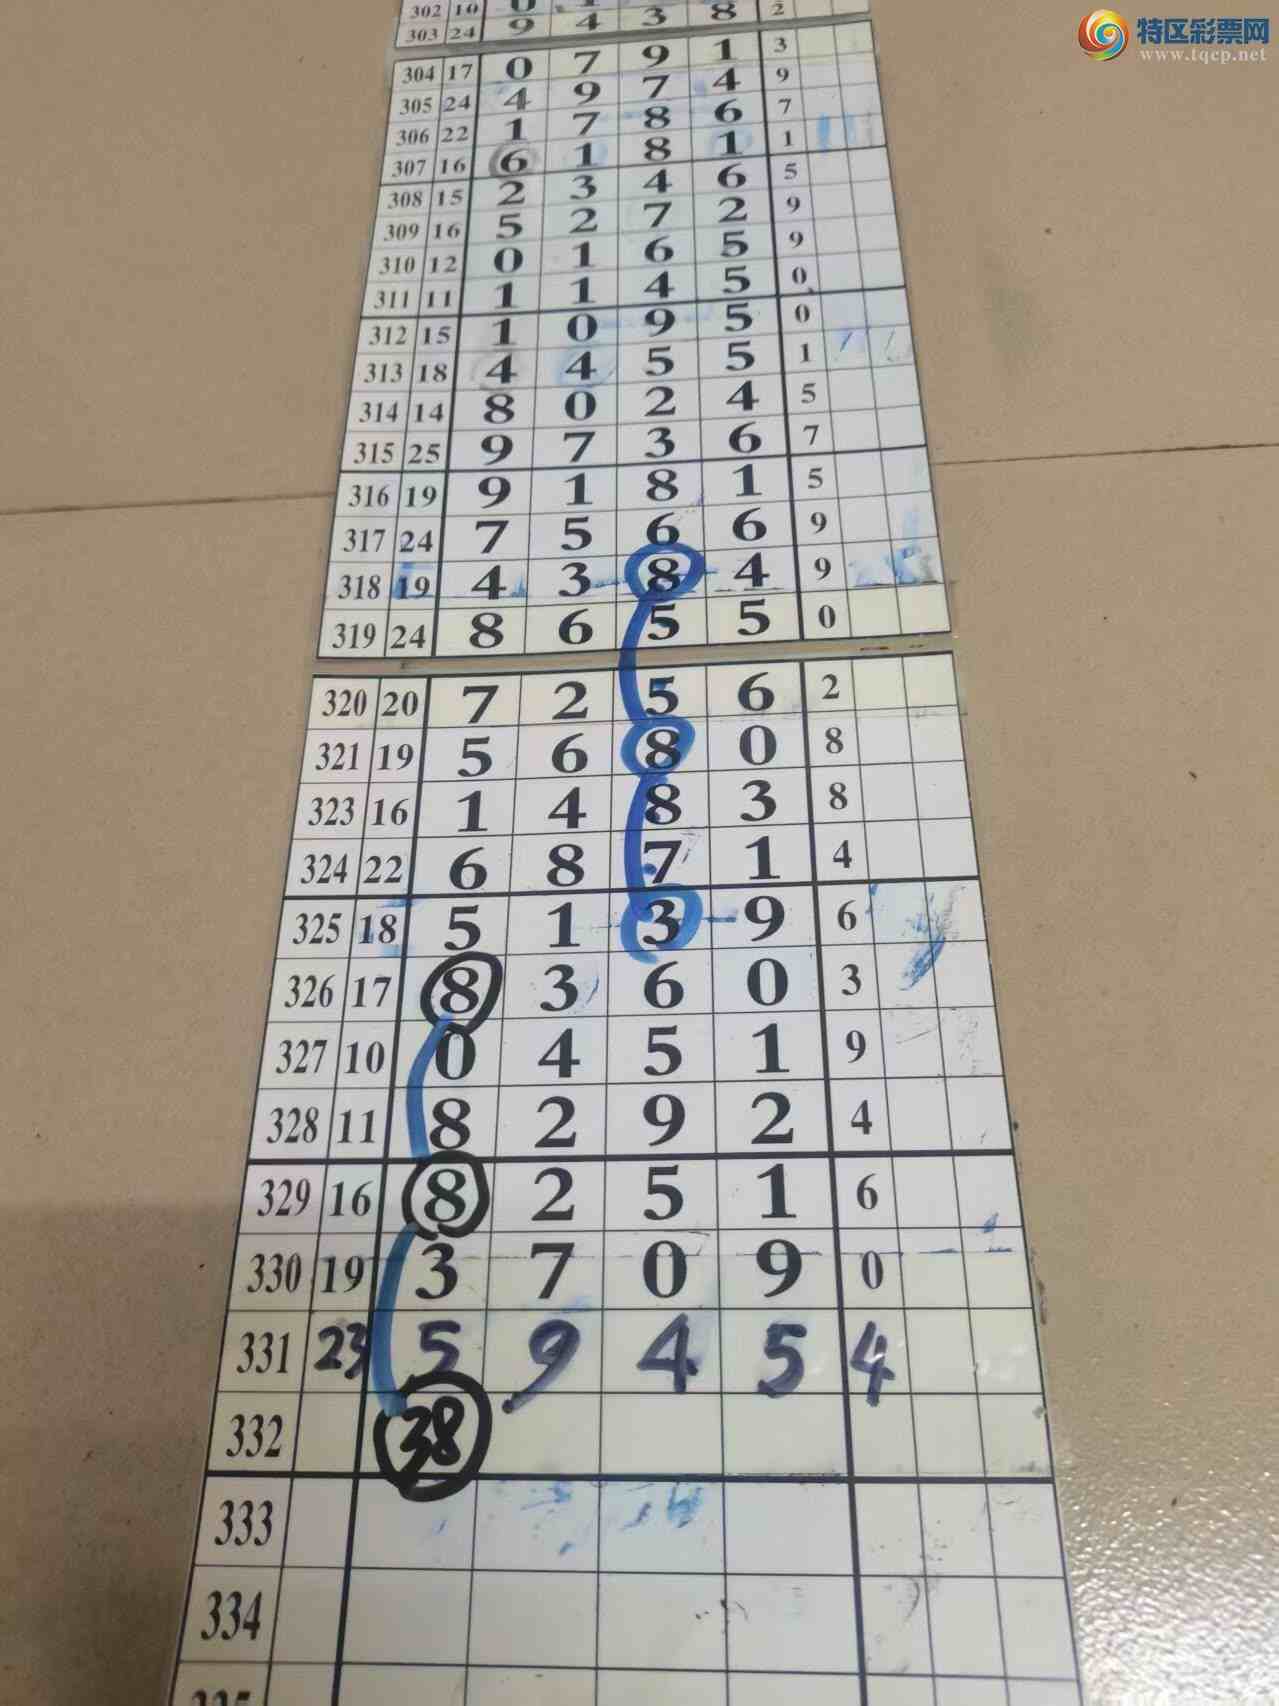 特区彩票网
www.tqcp.net
302 10
303 24 9 4 3 8 2
304 17 0 7 9 1 3
305 24 4 9 7 4 9
306 22 1 7 8 6 7
307 16 6 1 8 1 1
308 15 2 3 4 6 5
309 16 5 2 7 2 9
310 12 0 1 6 5 9
311 11 1 1 4 5 0
312 15 1 0 9 5 0
313 18 4 4 5 5 1
314 14 8 0 2 4 5
315 25 9 7 3 6 7
316 19 9 1 8 1 5
317 24 7 5 6 6 9
318 19 4 3 8 4 9
319 24 8 6 5 5 0
320 20 7 2 5 6 2
321 19 5 6 8 0 8
323 16 1 4 8 3 8
324 22 6 8 7 1 4
325 18 5 1 3 9 6
326 17 8 3 6 0 3
327 10 0 4 5 1 9
328 11 8 2 9 2 4
329 16 8 2 5 1 6
330 19 3 7 0 9 0
331 23 5 9 4 5 4
332 38
333
334